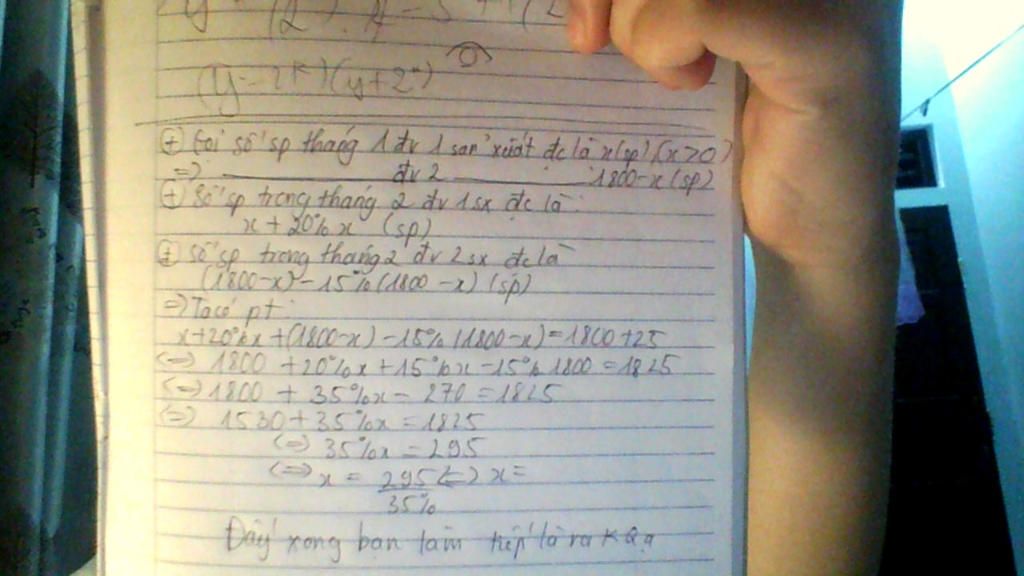 (y-2ᵏ)(y+2ⁿ)
+ Gọi số sp tháng 1 đv 1 sản xuất đc là x(sp) (x>0)
=> đv 2 1800-x (sp)
+ Số sp trong tháng 2 đv 1 sx đc là:
x + 20%x (sp)
+ Số sp trong tháng 2 đv 2 sx đc là
(1800-x) - 15%(1800-x) (sp)
=> Ta có pt:
x+20%x+(1800-x)-15%(1800-x)=1800+25
<=> 1800 +20%x+15%x-15%1800=1825
<=> 1800 + 35%x - 270 = 1825
<=> 1530+35%x=1825
<=> 35%x=295
<=> x = 295/35% <=> x=
Đấy xong bạn làm tiếp là ra KQ ạ